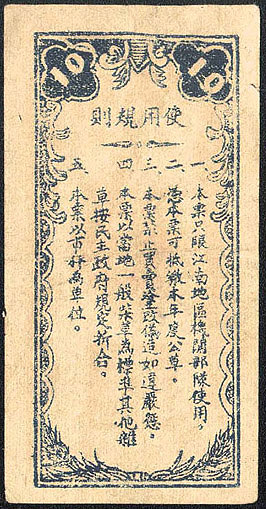 10
10
使用規則
一、本票只限江南地區機關部隊使用。
二、憑本票可抵繳本年度公草。
三、本票禁止買賣塗改偽造如違嚴懲。
四、本票以當地一般柴草為標準其他雜
草按民主政府規定折合。
五、本票以市秤為單位。